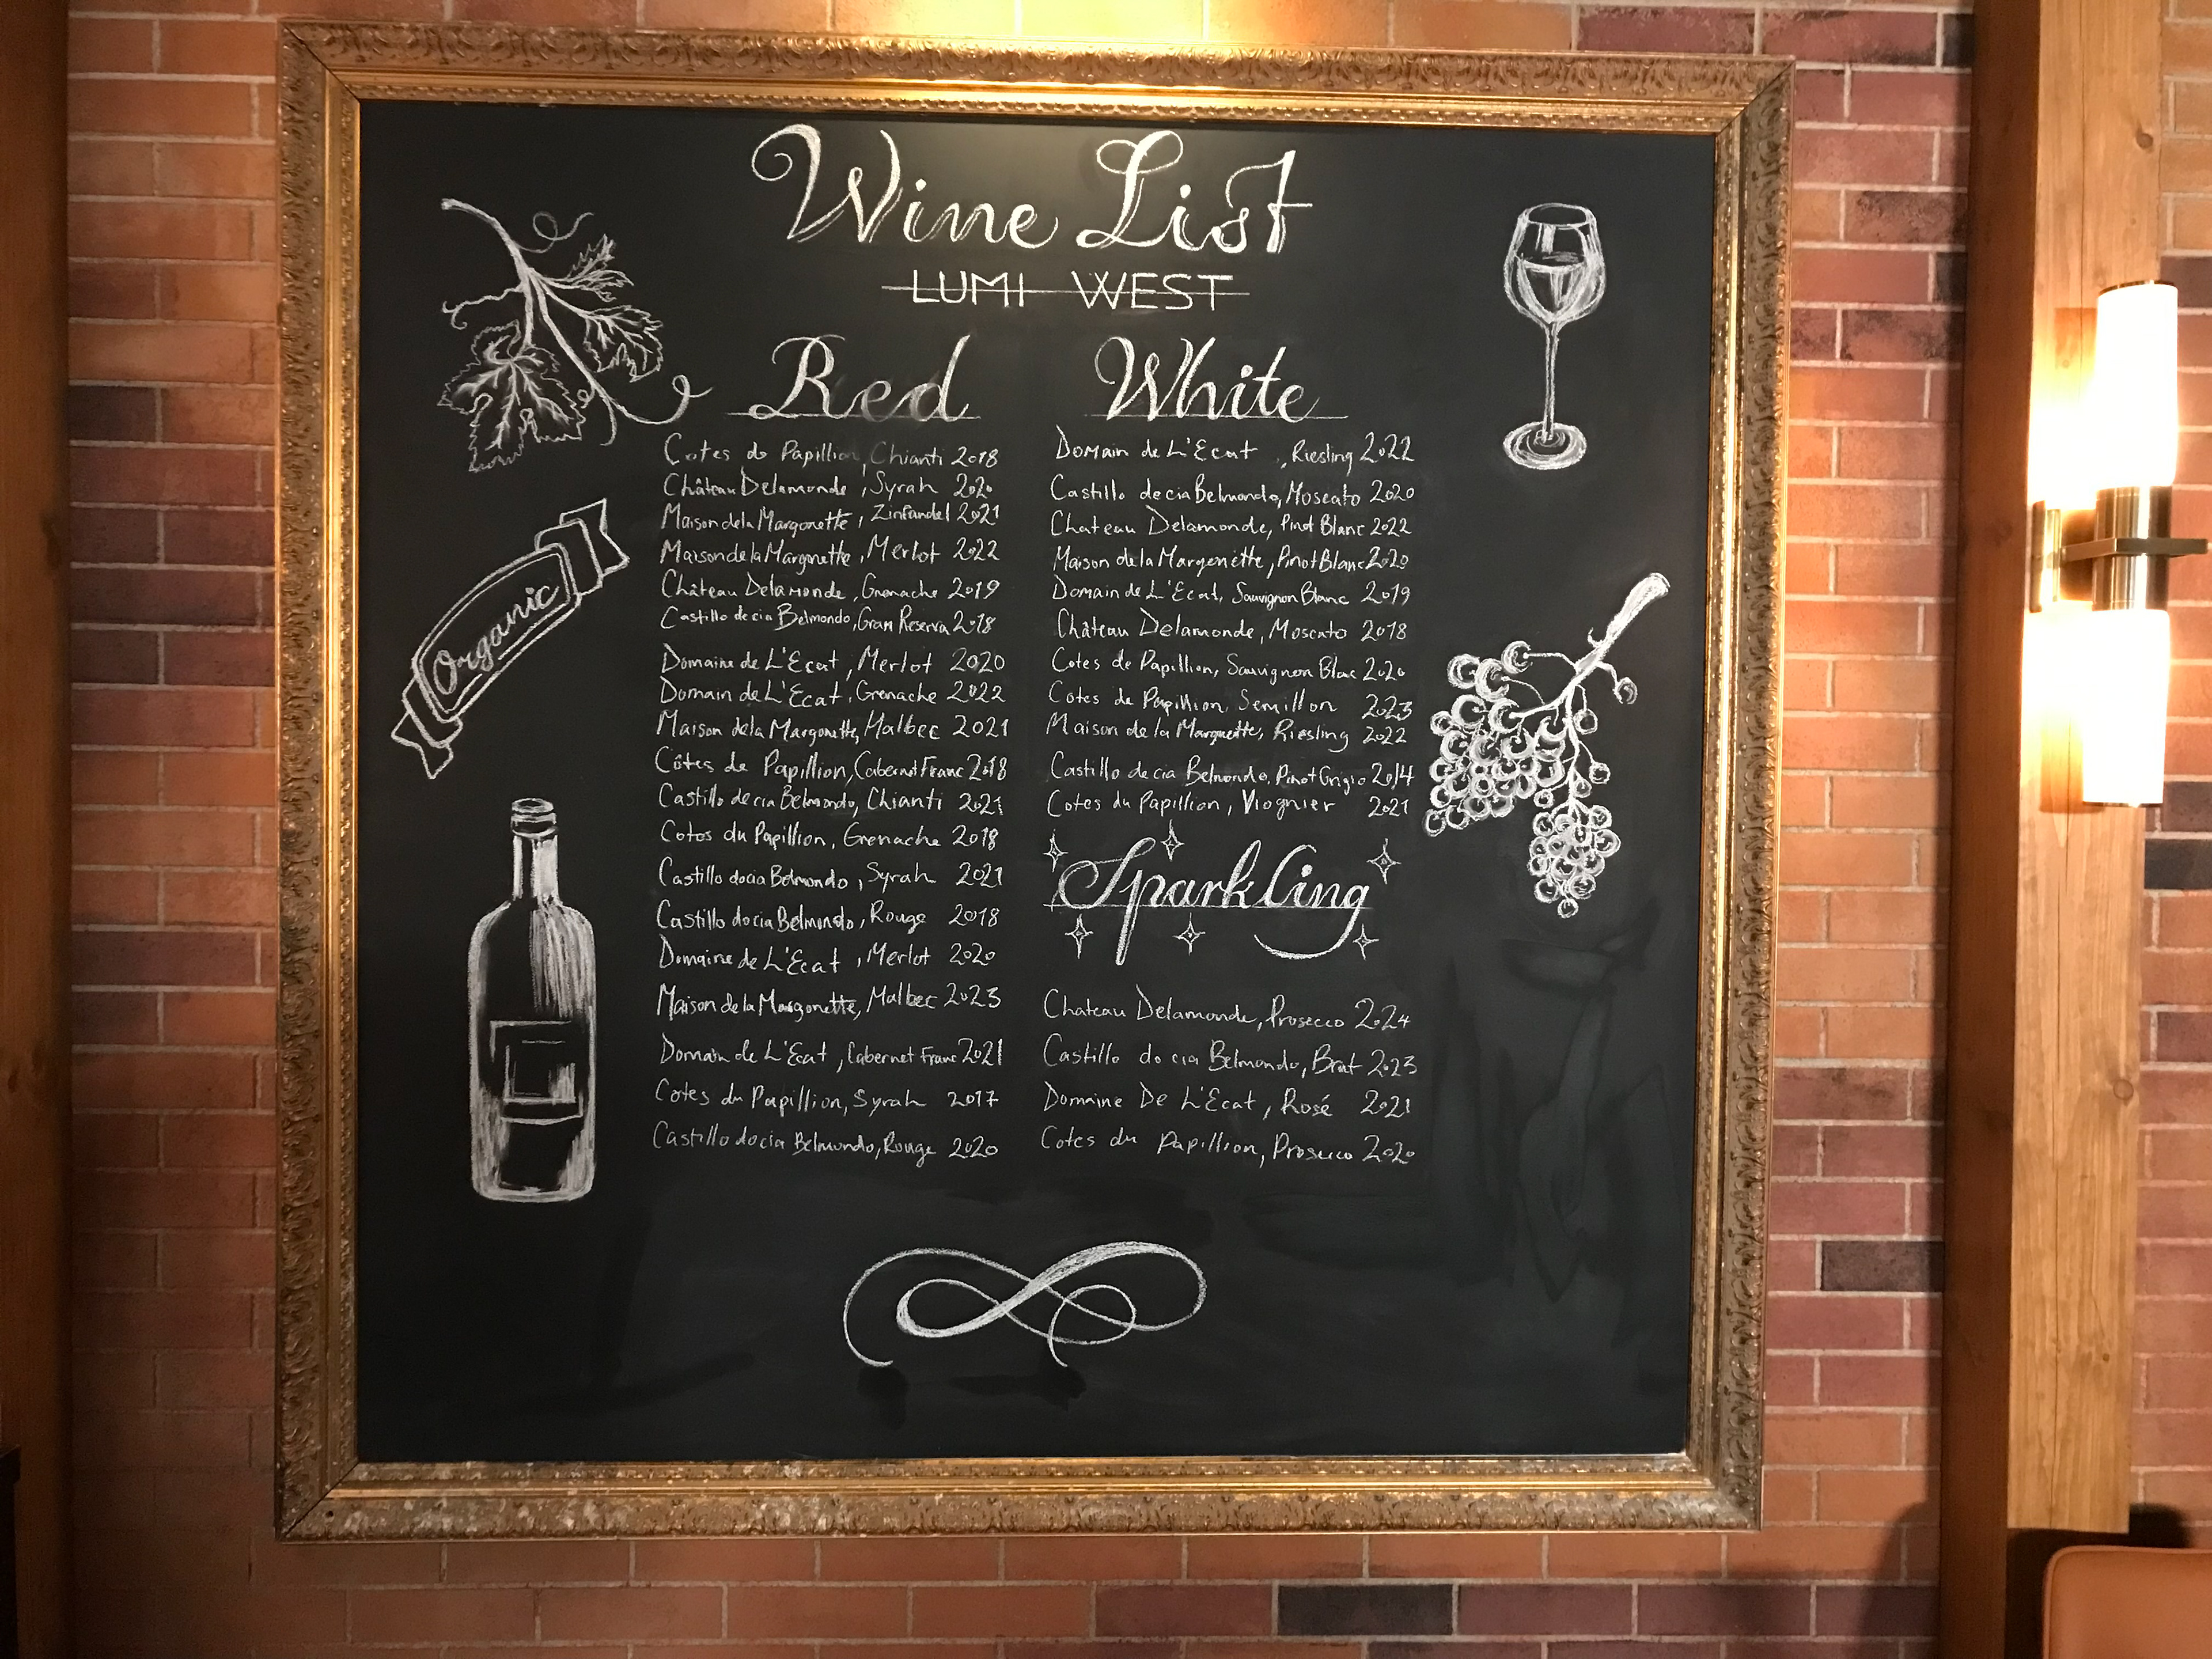 Wine List
LUMI WEST
Red
Cotes de Papillion, Chianti 2018
Château Delamonde, Syrah 2020
Maison de la Margonette, Zinfandel 2021
Maison de la Margonette, Merlot 2022
Château Delamonde, Grenache 2019
Castillo de cia Belmondo, Gran Reserva 2018
Domaine de L'Ecat, Merlot 2020
Domain de L'Ecat, Grenache 2022
Maison de la Margonette, Malbec 2021
Côtes de Papillion, Cabernet Franc 2018
Castillo de cia Belmondo, Chianti 2021
Cotes du Papillion, Grenache 2018
Castillo do cia Belmondo, Syrah 2021
Castillo do cia Belmondo, Rouge 2018
Domaine de L'Ecat, Merlot 2020
Maison de la Margonette, Malbec 2023
Domain de L'Ecat, Cabernet Franc 2021
Cotes du Papillion, Syrah 2017
Castillo do cia Belmondo, Rouge 2020
White
Domain de L'Ecat, Riesling 2022
Castillo de cia Belmondo, Moscato 2020
Chateau Delamonde, Pinot Blanc 2022
Maison de la Margenette, Pinot Blanc 2020
Domain de L'Ecat, Sauvignon Blanc 2019
Château Delamonde, Moscato 2018
Cotes de Papillion, Sauvignon Blanc 2020
Cotes de Papillion, Semillon 2023
Maison de la Marguette, Riesling 2022
Castillo de cia Belmondo, Pinot Grigio 2014
Cotes du Papillion, Viognier 2021
Sparkling
Chateau Delamonde, Prosecco 2024
Castillo do cia Belmondo, Brut 2023
Domaine De L'Ecat, Rosé 2021
Cotes du Papillion, Prosecco 2020
Organic